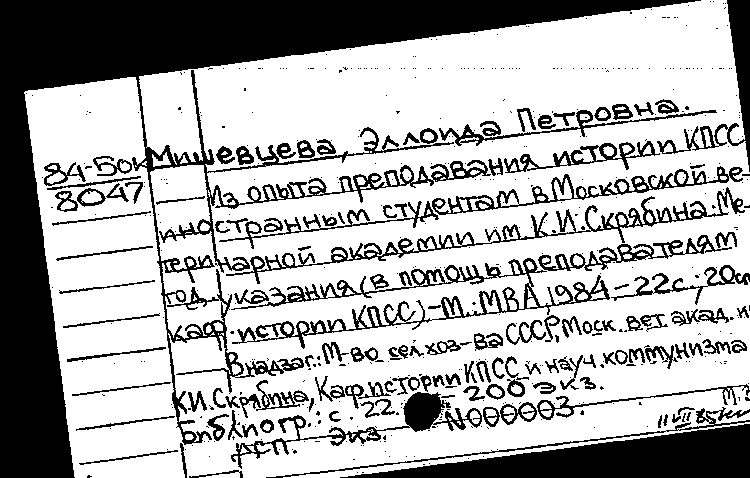 84-Бок Мишевцева, Эллоида Петровна.
8047 Из опыта преподавания истории КПСС
иностранным студентам в Московской ве-
теринарной академии им. К.И.Скрябина: Ме-
тод. указания (в помощь преподавателям
каф. истории КПСС).-М.: МВА, 1984.-22с.; 20см
В надзаг.: М-во сел. хоз-ва СССР, Моск. вет. акад. и
К.И. Скрябина, Каф. истории КПСС и науч. коммунизма
Библиогр.: с. 22. 200 экз.
ДСП. Экз. N000003.
М.